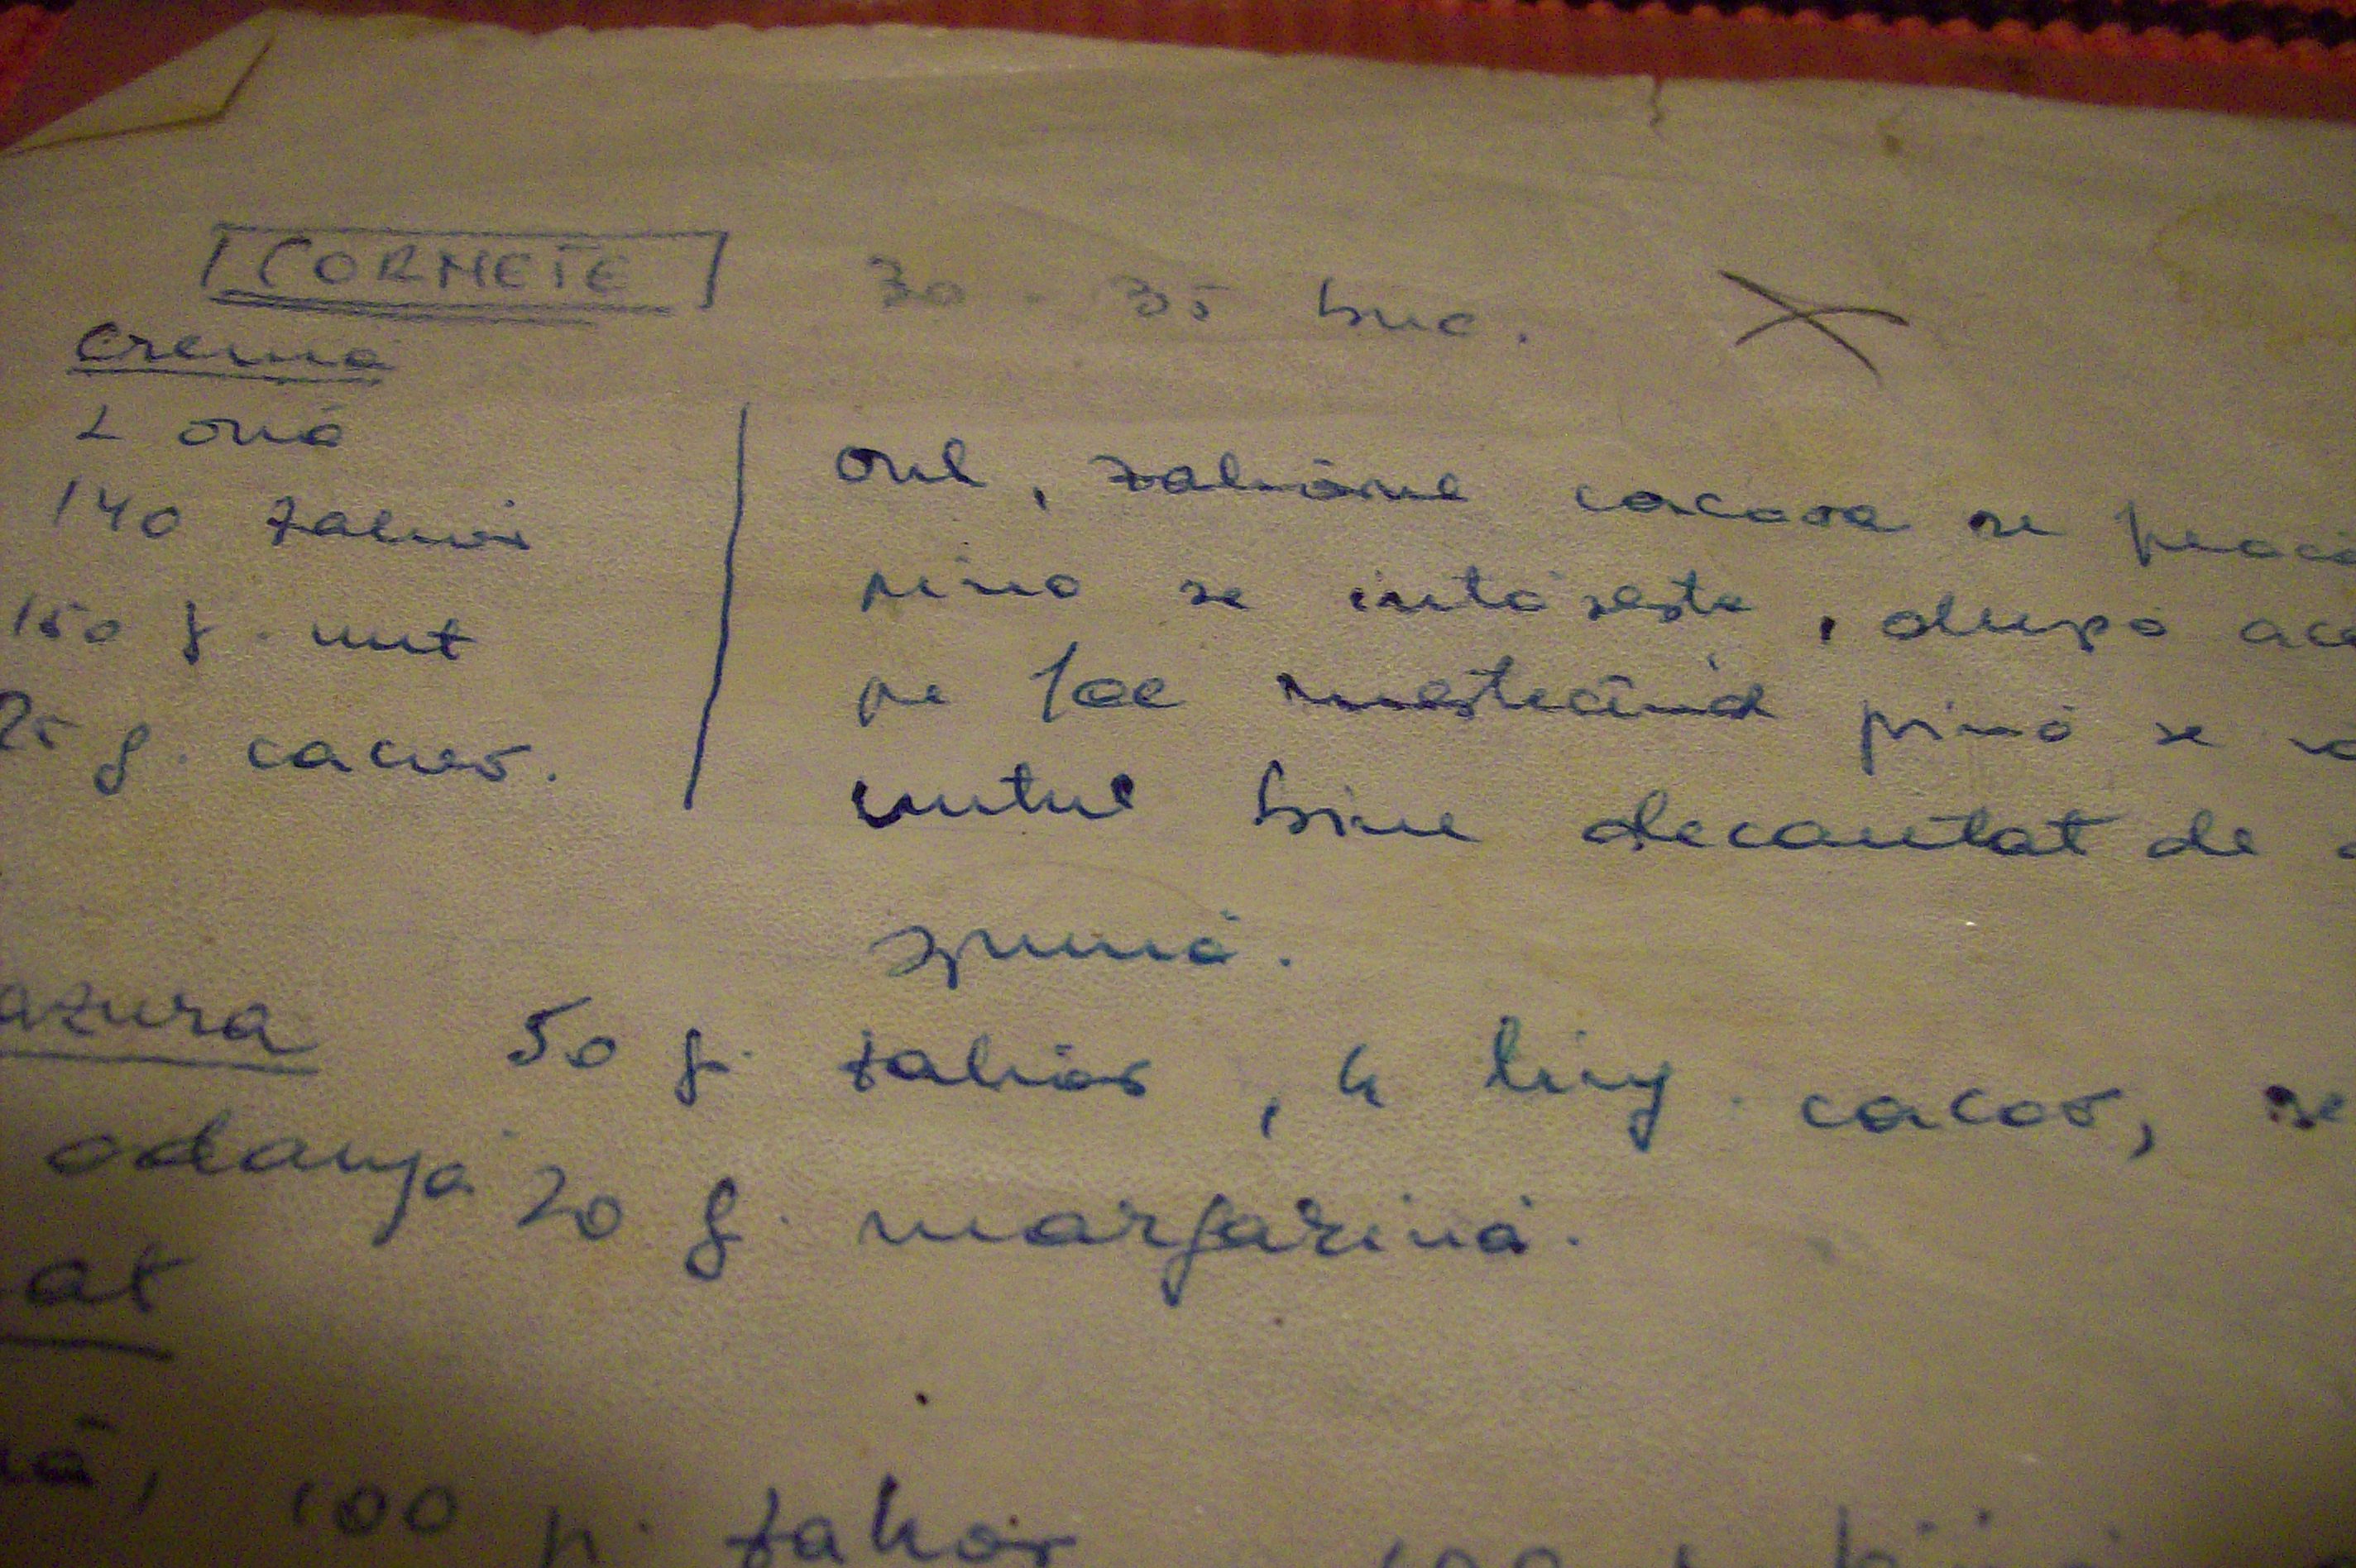 CORNETE 30 - 35 buc.
cremă
2 ouă
140 zahăr
150 g. unt
25 g. cacao.
oul, zahărul cacaoa se
pînă se întărește, după
pe foc mestecînd pînă se
untul bine decantat de
spumă.
azura 50 g. zahăr, 4 ling. cacao, se
adaugă 20 g. margarină.
at
100 g. zahăr 100